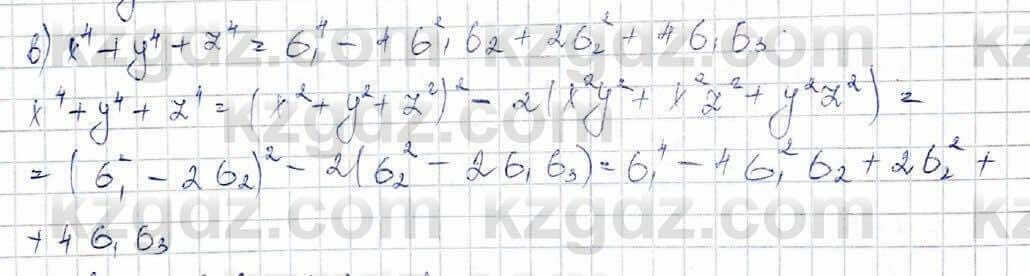 в) x⁴ + y⁴ + z⁴ = б₁⁴ - 4б₁²б₂ + 2б₂² + 4б₁б₃.
x⁴ + y⁴ + z⁴ = (x² + y² + z²)² - 2(x²y² + x²z² + y²z²) =
= (б₁² - 2б₂)² - 2(б₂² - 2б₁б₃) = б₁⁴ - 4б₁²б₂ + 2б₂² +
+ 4б₁б₃
kzgdz.com
kzgdz.com
kzgdz.com